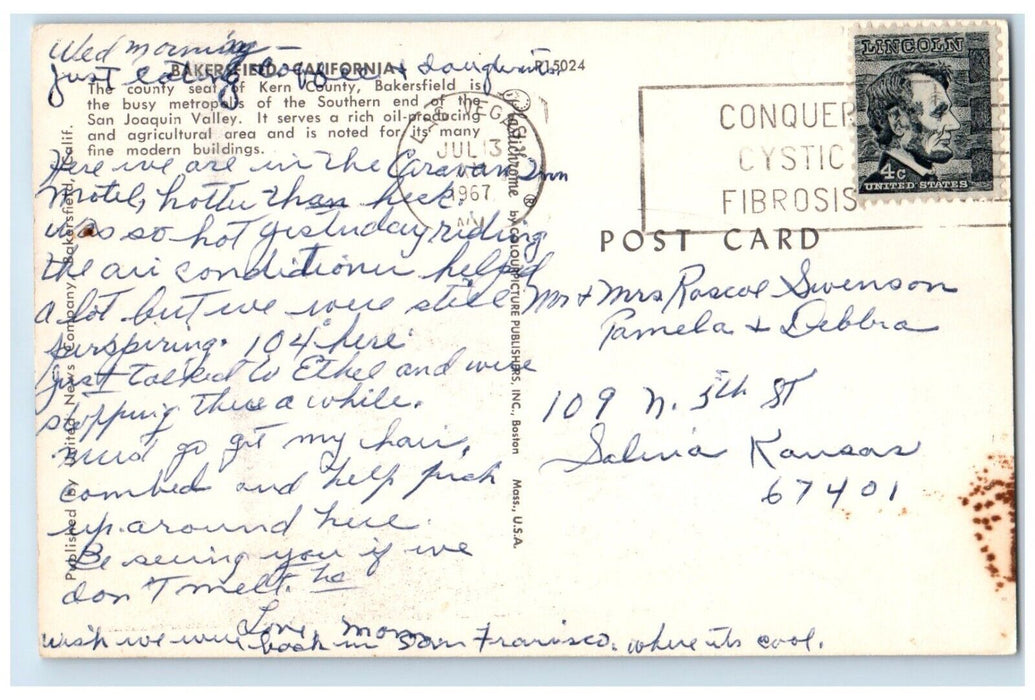 Wed morning –
just eating coffee + doughnuts
BAKERSFIELD, CALIFORNIA
P15024
The county seat of Kern County, Bakersfield is
the busy metropolis of the Southern end of the
San Joaquin Valley. It serves a rich oil-producing
and agricultural area and is noted for its many
fine modern buildings.
Here we are in the Caravan Inn
Motel, hotter than heck,
was so hot yesterday riding
the air conditioner helped
a lot but we were still
perspiring. 104° here
just talked to Ethel and were
stopping there a while.
must go get my hair
combed and help pick
up around here.
Be seeing you if we
don't melt. ha
Love Mom
wish we were back in San Francisco. where its cool.
Published by United News Company, Bakersfield, Calif.
Plastichrome ® by COLOURPICTURE PUBLISHERS, INC., Boston Mass., U.S.A.
VEGAS
JUL 13
1967
CONQUER
CYSTIC
FIBROSIS
LINCOLN
4c
UNITED STATES
POST CARD
Mr + Mrs Roscoe Swenson
Pamela + Debbra
109 N. 5th St
Salina Kansas
67401